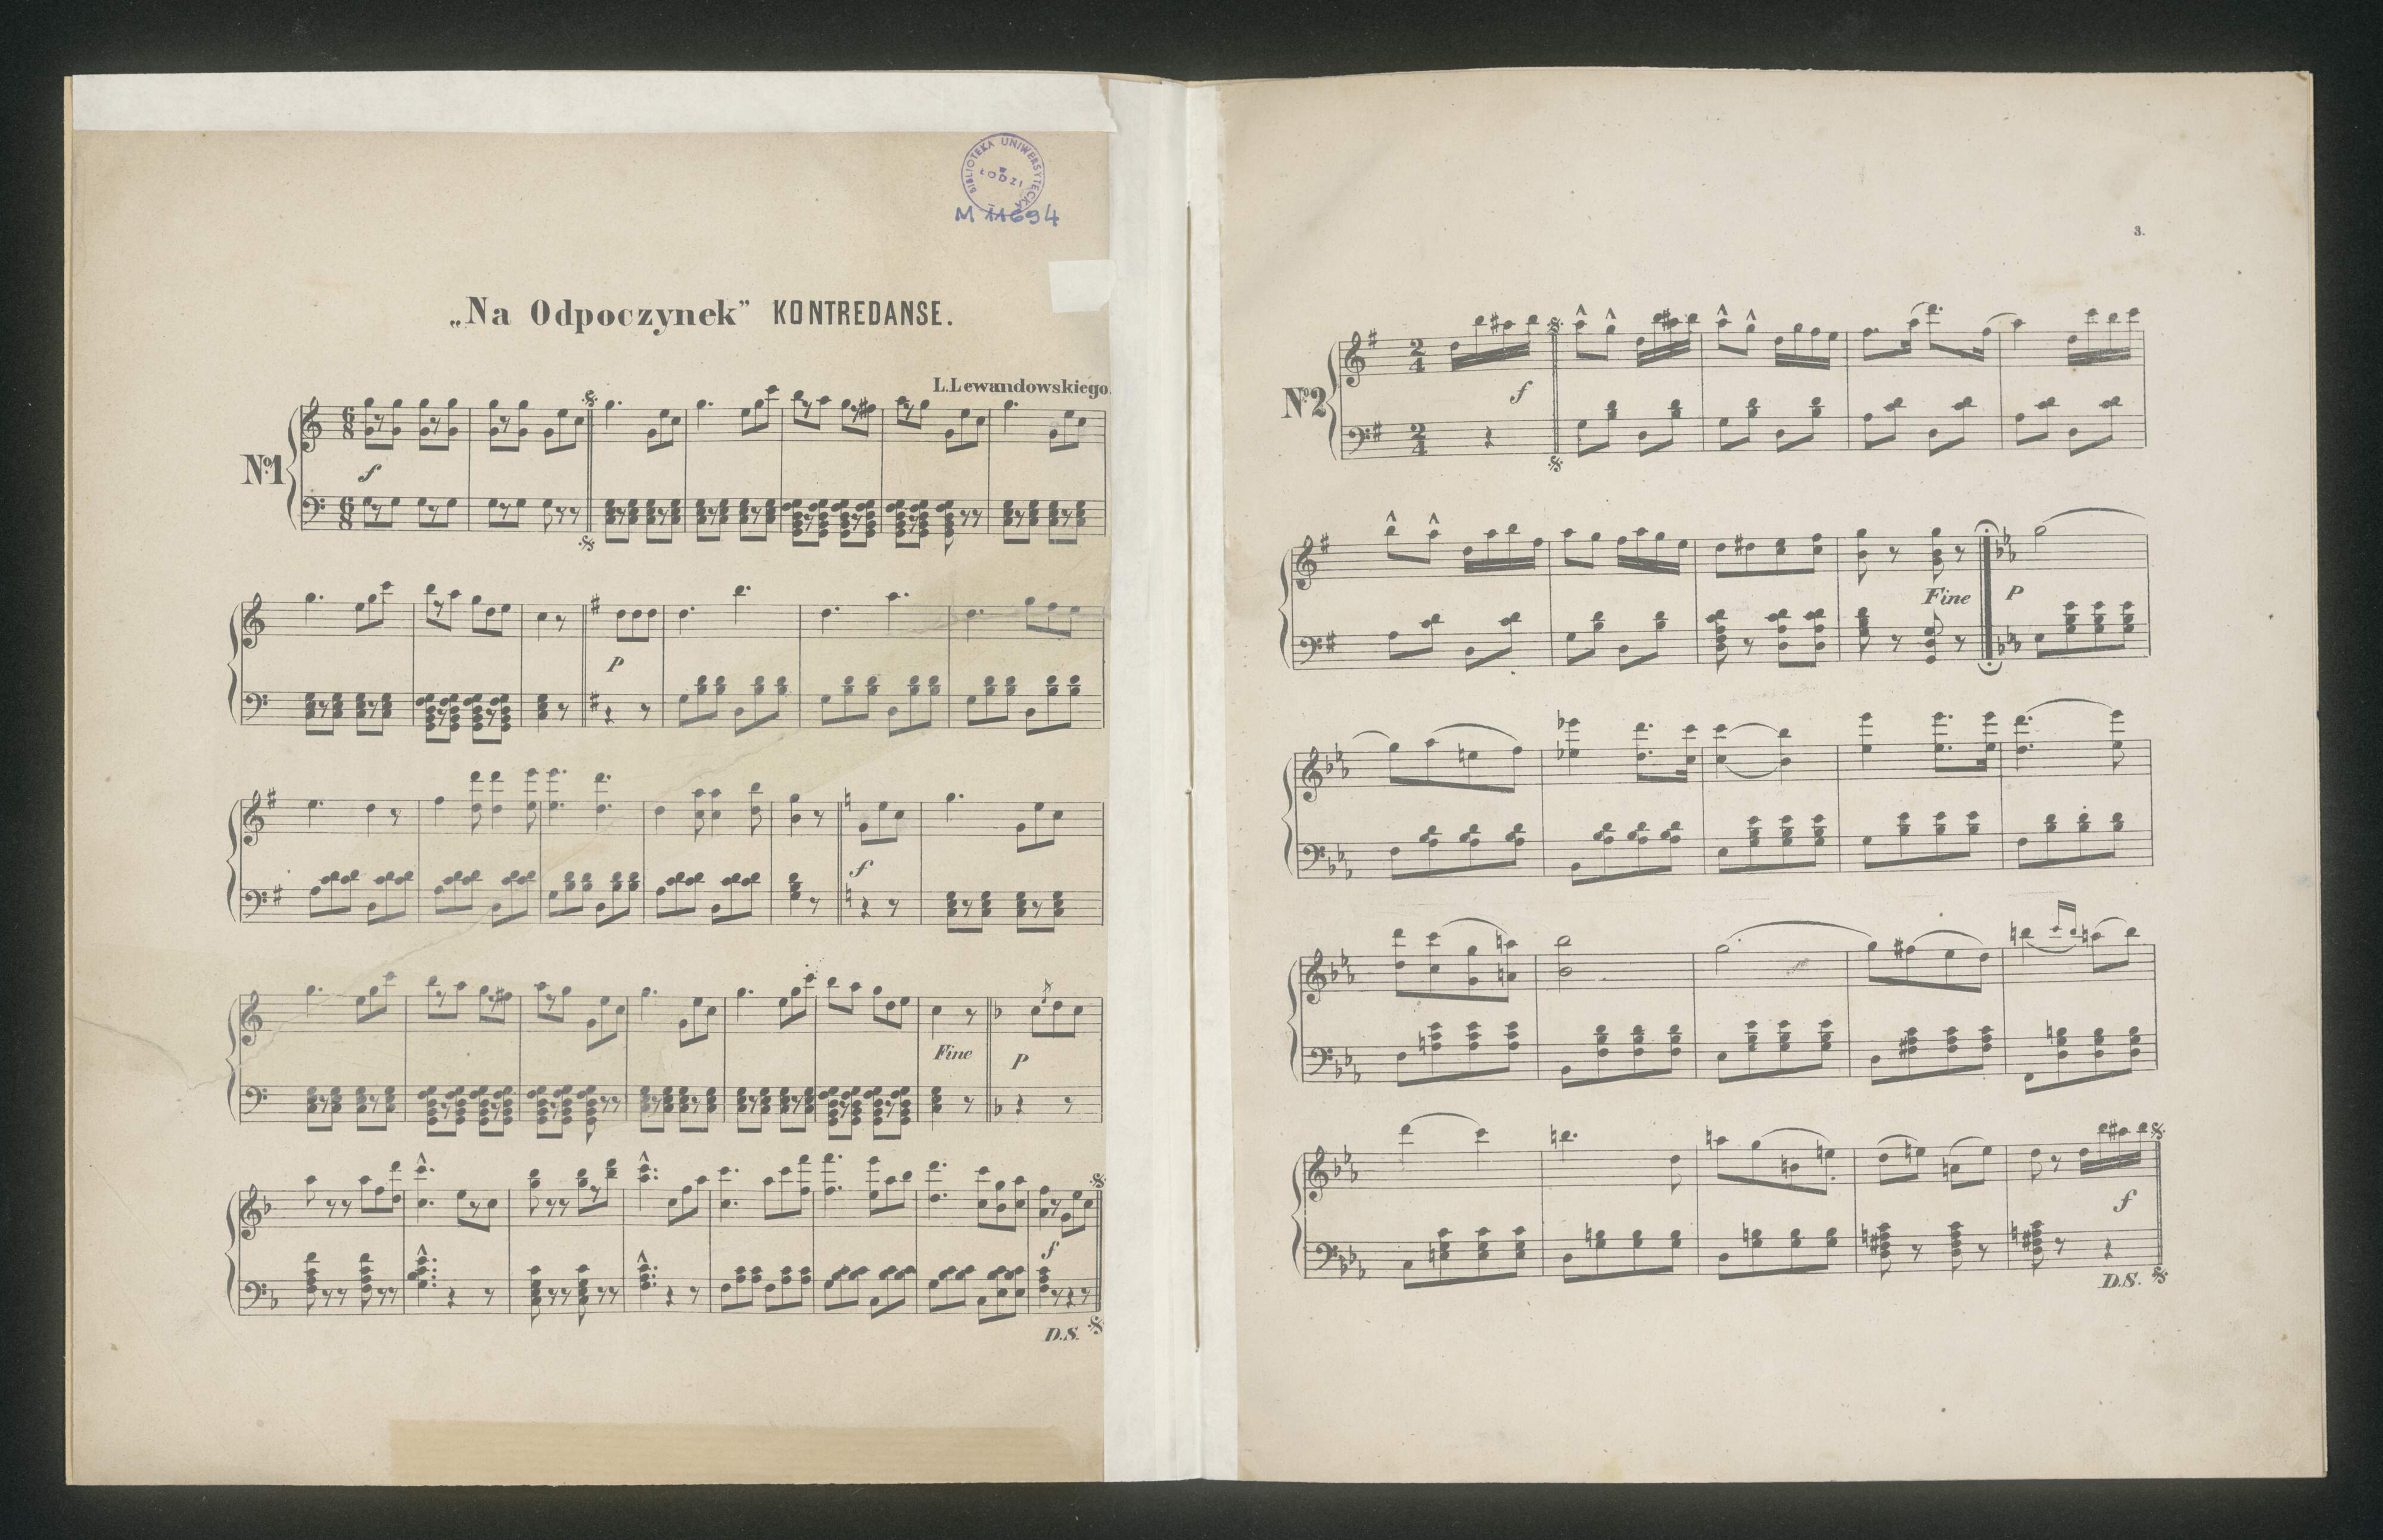 BIBLIOTEKA UNIWERSYTECKA
w
ŁODZI
M 11694
„Na Odpoczynek” KONTREDANSE.
L. Lewandowskiego.
No1
6
8
f
6
8
p
f
Fine
p
f
D.S.
3.
No2
2
4
f
2
4
Fine
p
f
D.S.